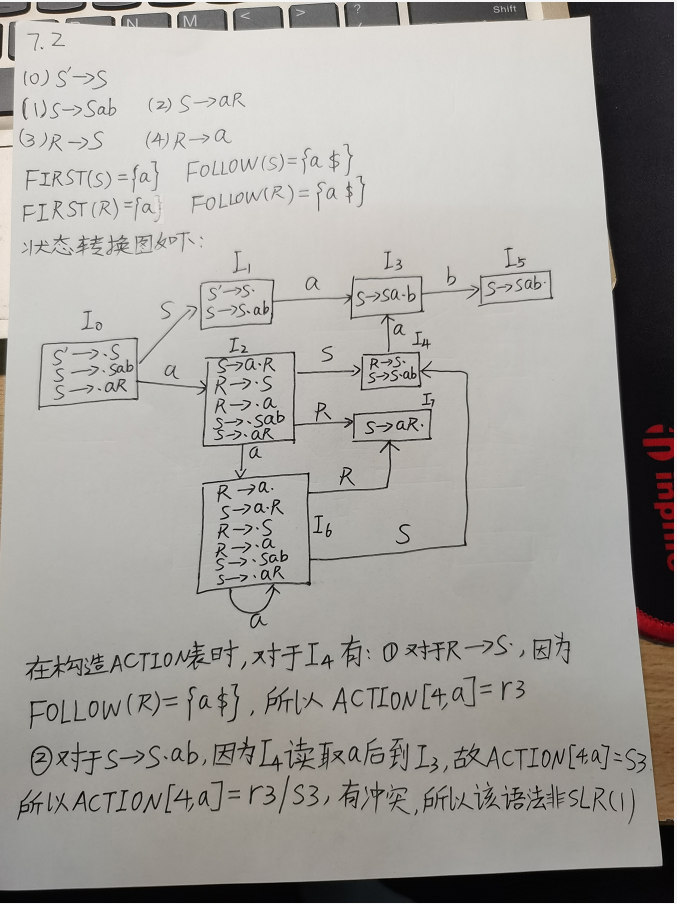 N M < > ? / Shift
7.2
(0) S'→S
(1) S→Sab (2) S→aR
(3) R→S (4) R→a
FIRST(S)={a} FOLLOW(S)={a $}
FIRST(R)={a} FOLLOW(R)={a $}
状态转换图如下:
I0
S'→·S
S→·Sab
S→·aR
S
a
I1
S'→S·
S→S·ab
a
I3
S→Sa·b
b
I5
S→Sab·
I2
S→a·R
R→·S
R→·a
S→·Sab
S→·aR
S
a
I4
R→S·
S→S·ab
R
I7
S→aR·
a
R→a·
S→a·R
R→·S
R→·a
S→·Sab
S→·aR
I6
R
S
a
在构造ACTION表时,对于I4有:①对于R→S·,因为
FOLLOW(R)={a $},所以ACTION[4,a]=r3
②对于S→S·ab,因为I4读取a后到I3,故ACTION[4,a]=S3
所以ACTION[4,a]=r3/S3,有冲突,所以该语法非SLR(1)